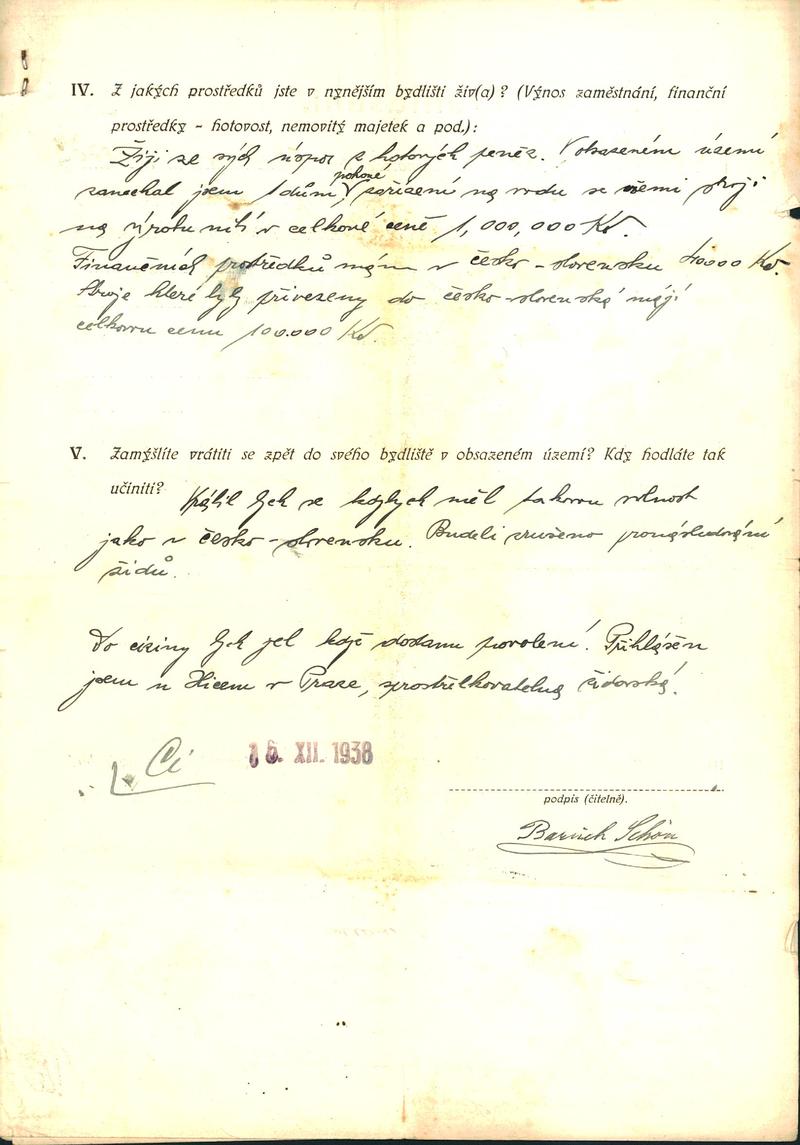 IV. Z jakých prostředků jste v nynějším bydlišti živ(a)? (Výnos zaměstnání, finanční
prostředky - hotovost, nemovitý majetek a pod.):
Žiji ze svých úspor z hotových peněz. V obsazeném území
zanechal jsem 1 dům
na výrobu nití v celkové ceně 1,000,000 Kč.
Finančních prostředků mám v česko-slovensku 40000 Kč.
Stroje které byly přivezeny do česko-slovenska mají
celkovou cenu 100.000 Kč.
V. Zamýšlíte vrátiti se zpět do svého bydliště v obsazeném území? Kdy hodláte tak
učiniti?
Vrátil bych se kdybych měl takovou volnost
jako v česko-slovensku. Budeli zrušeno pronásledování
židů.
Do ciziny bych jel když dostanu povolení. Přihlášen
jsem u Hicem v Praze, zprostřelkovatelna židovská.
16. XII. 1938
podpis (čitelně).
Baruch Schön